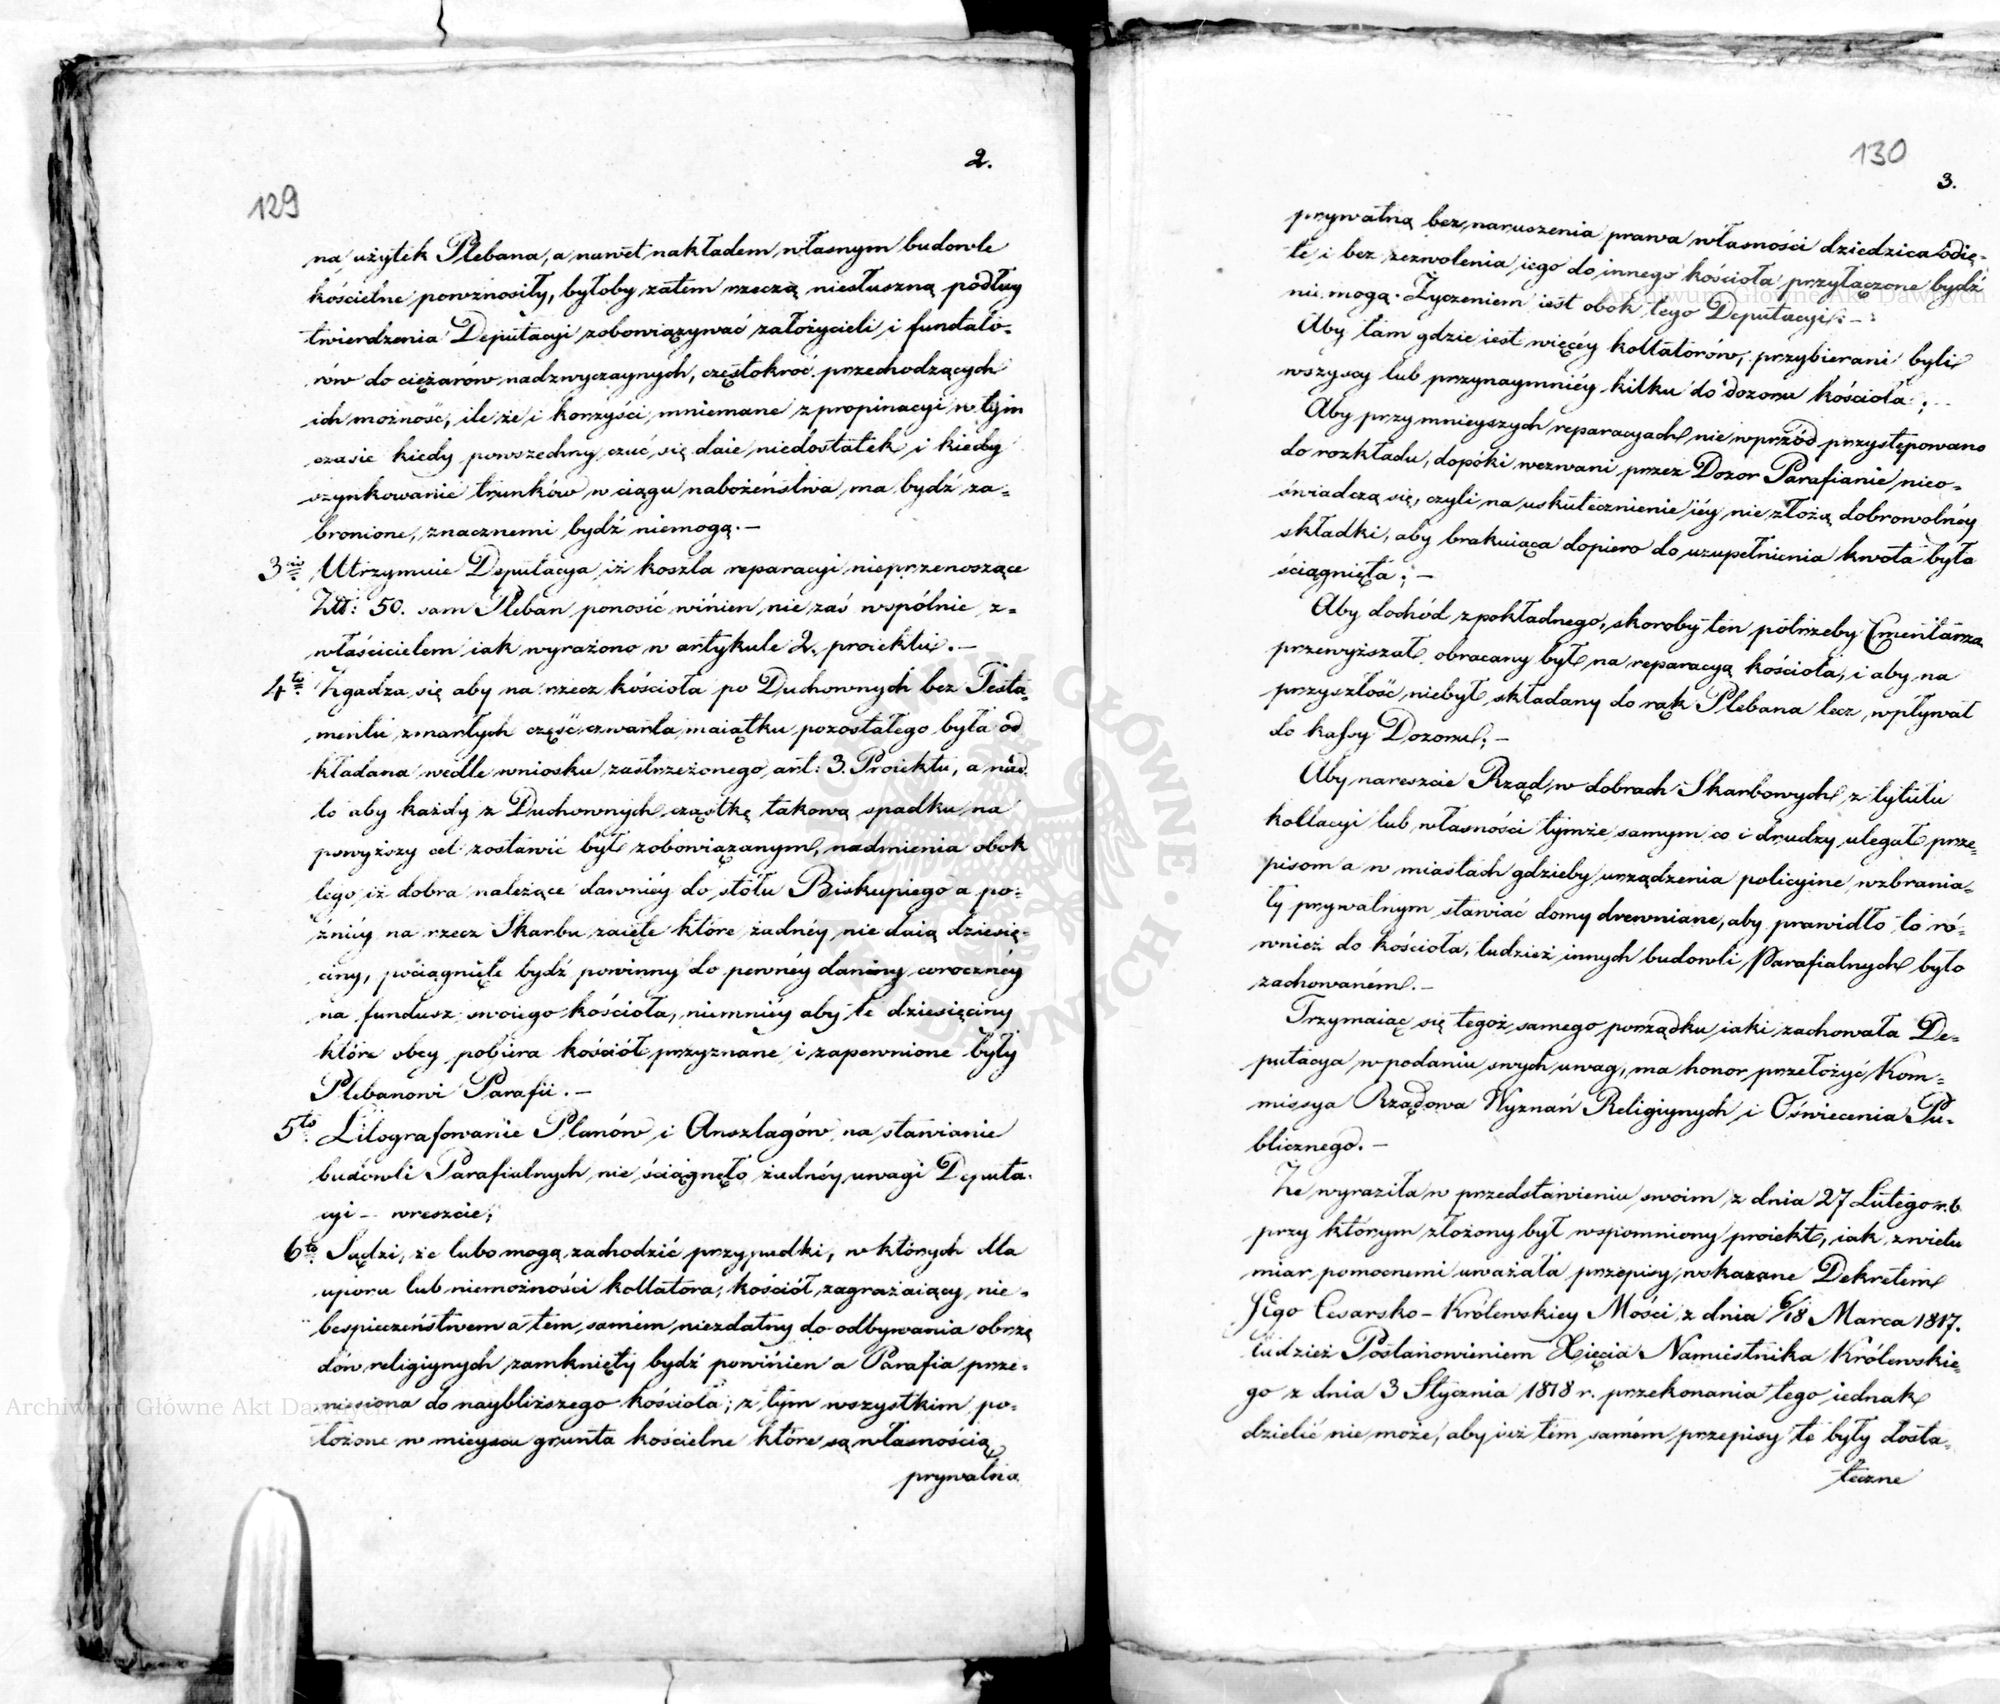 2.
129
na użytek Plebana, a nawet nakładem własnym budowle
kościelne powznosiły, byłoby zatem rzeczą niesłuszną podług
twierdzenia Deputacyi zobowiązywać założycieli i fundato-
rów do ciężarów nadzwyczaynych, częstokroć przechodzących
ich możność, ile że i korzyści mniemane z propinacyi w tym
czasie kiedy powszechny czuć się daie niedostatek i kiedy
szynkowanie trunków w ciągu nabożeństwa ma bydź za-
bronione, znacznemi bydź niemogą. —
3io Utrzymuie Deputacya iż koszta reparacyi nieprzenoszące
Złł: 50. sam Pleban ponosić winien, nie zaś wspólnie z-
właścicielem iak wyrażono w artykule 2. proiektu. —
4to Zgadza się aby na rzecz kościoła po Duchownych bez Testa-
mentu zmarłych część czwarta maiątku pozostałego była od
kładana wedle wniosku zastrzeżonego art: 3. Proiektu, a nad
to aby każdy z Duchownych cząstkę takową spadku na
powyższy cel zostawić był zobowiązanym, nadmienia obok
tego iż dobra należące dawniéy do stołu Biskupiego a po-
źniéy na rzecz Skarbu zaięte które żadnéy nie daią dziesię-
ciny, pociągnięte bydź powinny do pewnéy daniny corocznéy
na fundusz swoiego kościoła, niemniéy aby te dziesięciny
które obcy pobiera kościół przyznane i zapewnione były
Plebanowi Parafii. —
5to Litografowanie Planów i Anszlagów na stawianie
budowli Parafialnych nie ściągnęło żadnéy uwagi Deputa-
cyi — wreszcie;
6to Sądzi, że lubo mogą zachodzić przypadki, w których dla
uporu lub niemożności kollatora, kościół zagrażaiący nie-
bespieczeństwem a tem samém niezdatny do odbywania obrzę
dów religiynych zamknięty bydź powinien a Parafia prze-
niesiona do naybliższego kościoła; z tym wszystkim po-
łożone w mieyscu grunta kościelne które są własnością
prywatną
130
3.
prywatną bez naruszenia prawa własności dziedzica odię-
te i bez zezwolenia iego do innego kościoła przyłączone bydź
nie mogą. Życzeniem iest obok tego Deputacyi: —
Aby tam gdzie iest więcéy kollatorów, przybierani byli
wszyscy lub przynaymniéy kilku do dozoru kościoła;
Aby przy mnieyszych reparacyach nie wprzód przystępowano
do rozkładu, dopóki wezwani przez Dozor Parafianie nieo-
świadczą się, czyli na uskutecznienie iéy nie złożą dobrowolnéy
składki, aby brakuiąca dopiero do uzupełnienia kwota była
ściągnięta; —
Aby dochód z pokładnego, skoroby ten potrzeby Cmentarza
przewyższał obracany był na reparacyą kościoła, i aby na
przyszłość niebył składany do rąk Plebana lecz wpływał
do kassy Dozoru; —
Aby nareszcie Rząd w dobrach Skarbowych z tytułu
kollacyi lub własności tymże samym co i drudzy ulegał prze-
pisom a w miastach gdzieby urządzenia policyjne wzbrania-
ły prywatnym stawiać domy drewniane, aby prawidło to ró-
wnież do kościoła, tudzież innych budowli Parafialnych było
zachowaném. —
Trzymaiąc się tegoż samego porządku iaki zachowała De-
putacya w podaniu swych uwag, ma honor przełożyć Kom-
missya Rządowa Wyznań Religiynych i Oświecenia Pu-
blicznego. —
Że wyraziła w przedstawieniu swoim z dnia 27 Lutego r. b.
przy którym złożony był wspomniony proiekt, iak z wielu
miar pomocnemi uważała przepisy wskazane Dekretem
JEgo Cesarsko-Królewskiey Mości z dnia 6/18 Marca 1817.
tudzież Postanowieniem Xięcia Namiestnika Królewskie-
go z dnia 3 Stycznia 1818 r. przekonania tego iednak
dzielić nie może, aby iuż tém samém przepisy te były dosta-
teczne
Archiwum Główne Akt Dawnych
Archiwum Główne Akt Dawnych